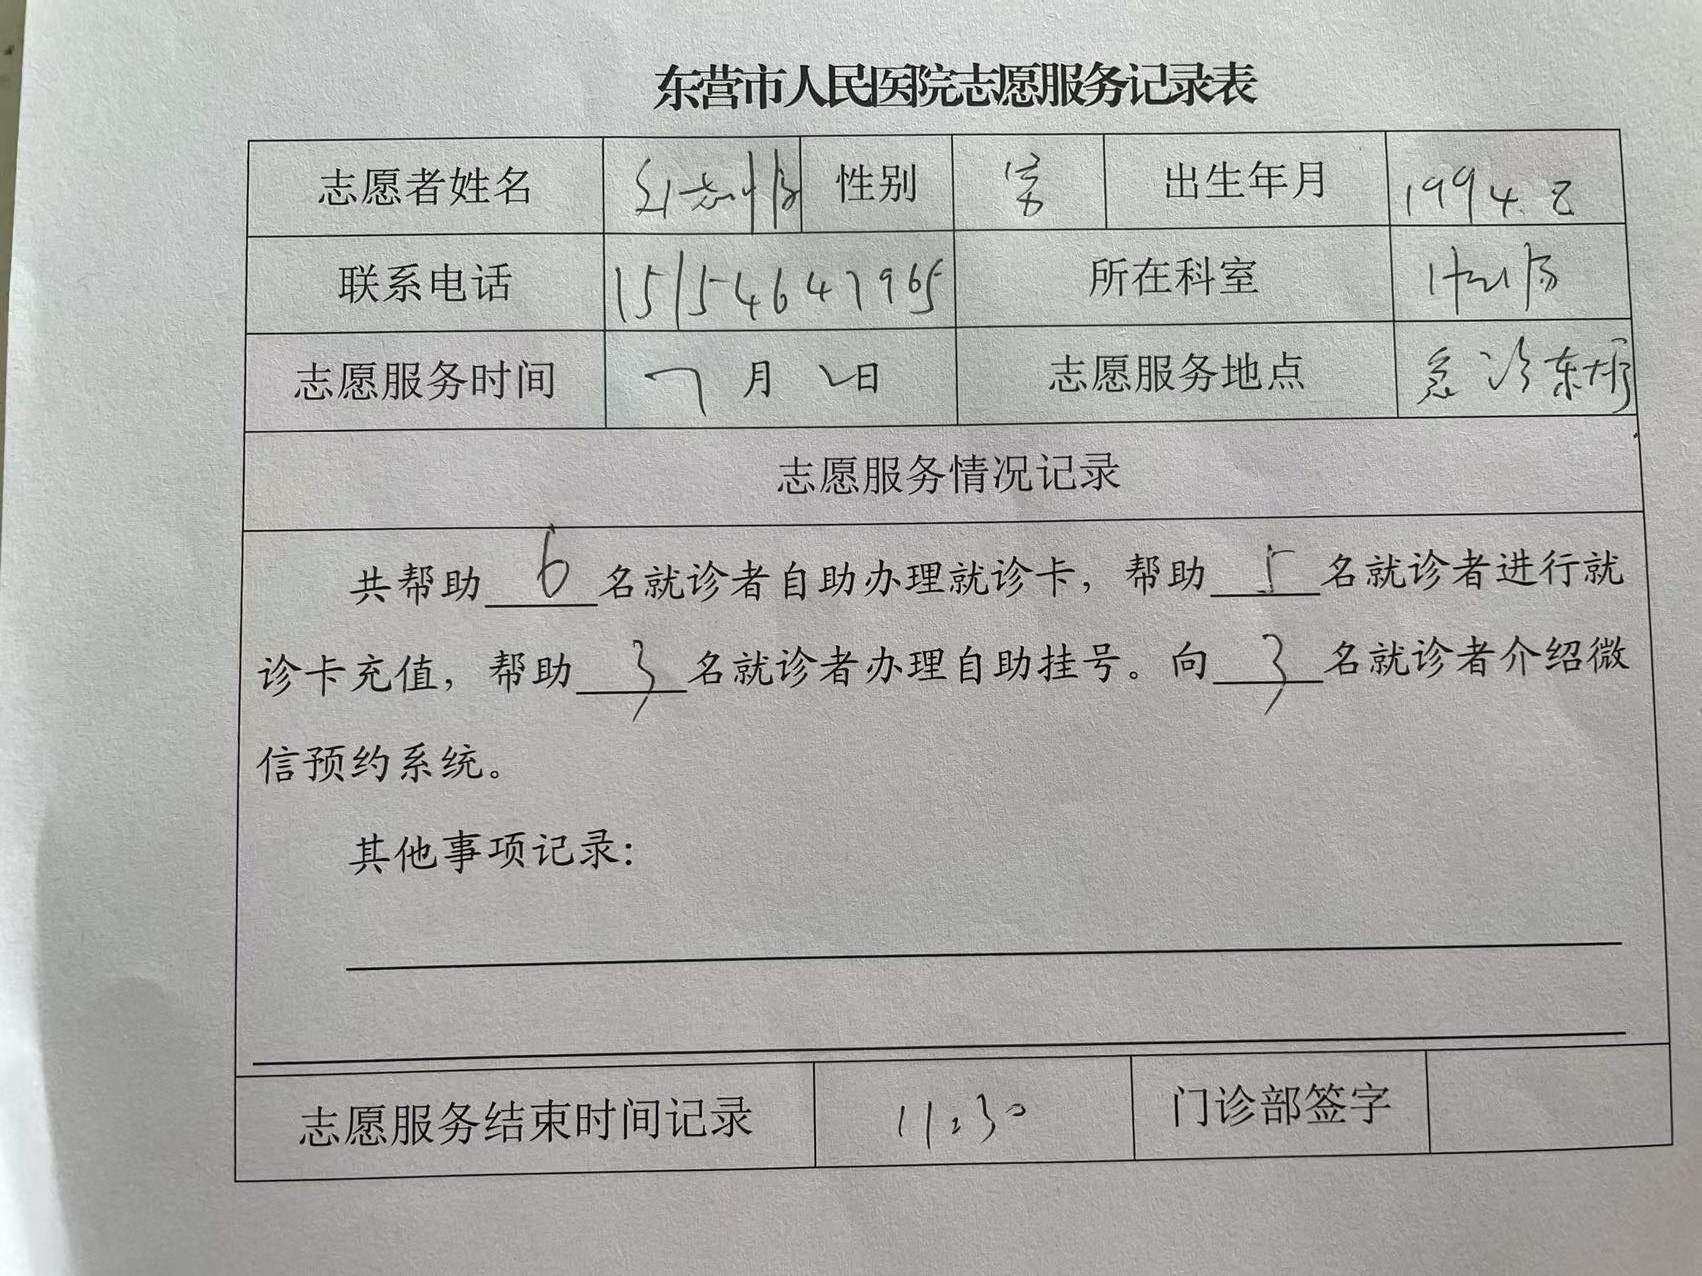 东营市人民医院志愿服务记录表
志愿者姓名 性别 男 出生年月 1994.2
联系电话 15154647965 所在科室
志愿服务时间 7月2日 志愿服务地点 急诊东大厅
志愿服务情况记录
共帮助6名就诊者自助办理就诊卡，帮助5名就诊者进行就
诊卡充值，帮助3名就诊者办理自助挂号。向3名就诊者介绍微
信预约系统。
其他事项记录：
志愿服务结束时间记录 11:30 门诊部签字